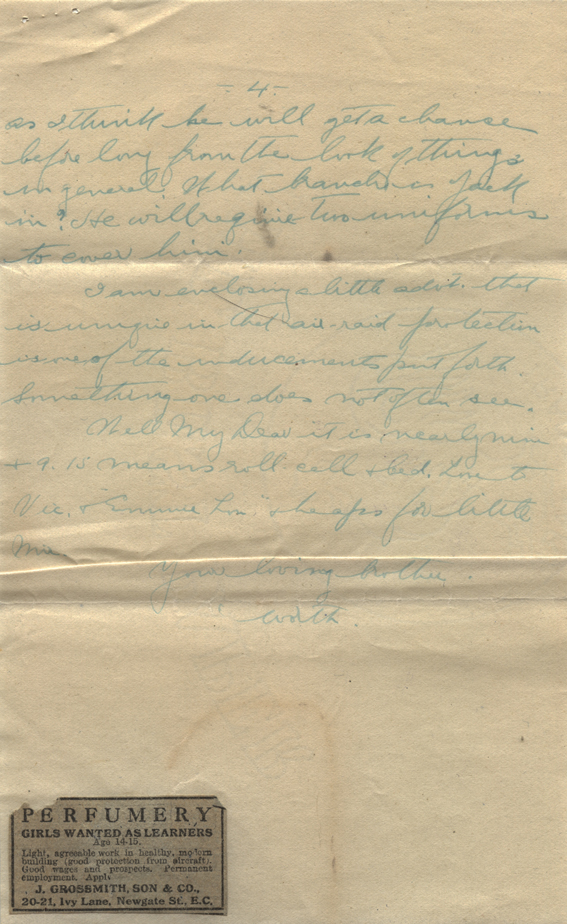 - 4 -
as I think he will get a chance
before long from the look of things
in general. What branch is Jack
in? He will require two uniforms
to cover him.
I am enclosing a little advt. that
is unique in that air-raid protection
is one of the inducements put forth.
Something one does not often see.
Well My Dear it is nearly nine
+ 9.15 means roll call & bed. Love to
Vic. & "Emmie Lou" & heaps for little
Your loving brother.
Worth.
PERFUMERY
GIRLS WANTED AS LEARNERS
Age 14-15.
Light, agreeable work in healthy, modern
building (good protection from aircraft).
Good wages and prospects. Permanent
employment. Apply
J. GROSSMITH, SON & CO.,
20-21, Ivy Lane, Newgate St., E.C.